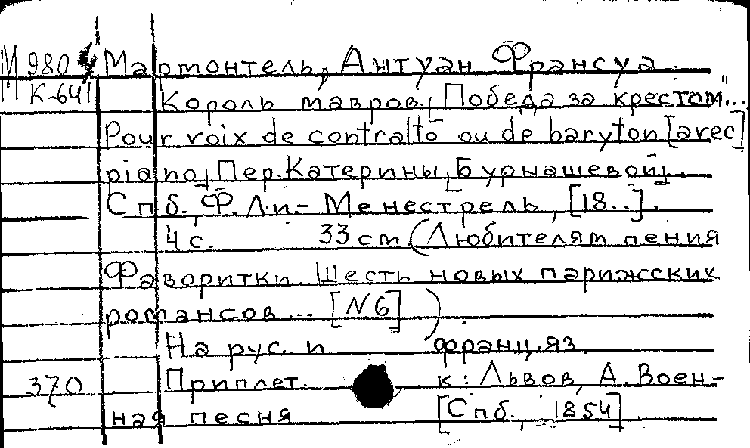 М 980 Мармонтель, Антуан Франсуа.
К-641 Король мавров. "Победа за крестом"...
Pour voix de contralto ou de baryton [avec]
piano, Пер. Катерины Бурнашевой.
Спб., Ф. Ли.- Менестрель, [18..].
4 с. 33 cm (Любителям пения
Фаворитки. Шесть новых парижских
романсов... [N6] )
На рус. и франц. яз.
370 Приплет. к: Львов, А. Воен-
ная песня [Спб., 1854]